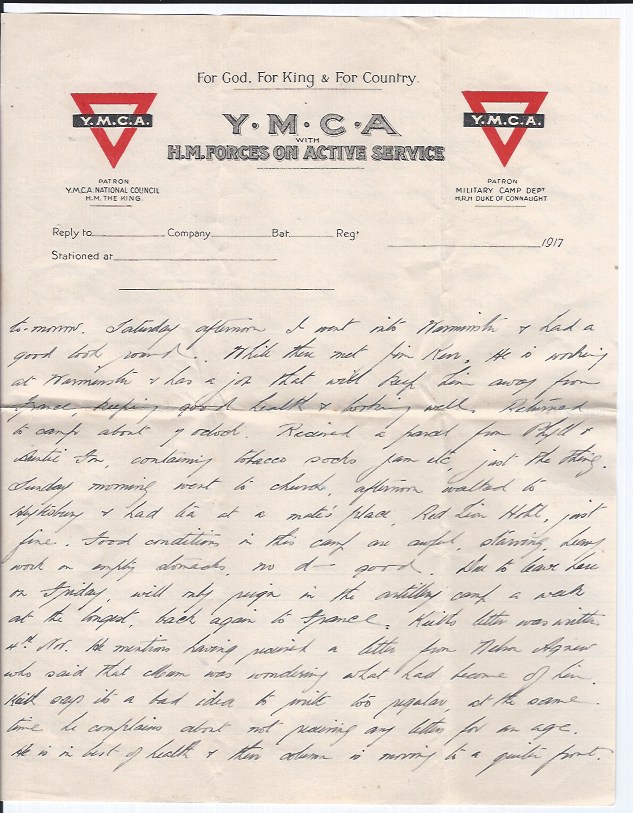 For God, For King & For Country.
Y.M.C.A.
Y.M.C.A
WITH
H.M. FORCES ON ACTIVE SERVICE
Y.M.C.A.
PATRON
Y.M.C.A. NATIONAL COUNCIL
H.M. THE KING.
PATRON
MILITARY CAMP DEPT
H.R.H DUKE OF CONNAUGHT.
Reply to Company Bat. Regt
1917
Stationed at
to-morrow. Saturday afternoon I went into Warminster & had a
good look round. While there met Jim Kerr. He is working
at Warminster & has a job that will keep him away from
France, keeping good health & looking well. Returned
to camp about 7 oclock. Received a parcel from Phyll &
Auntie containing tobacco socks jam etc, just the thing.
Sunday morning went to church, afternoon walked to
Heytesbury & had tea at a mate's place, Red Lion Hotel, just
fine. Food conditions in this camp are awful, starving, heavy
work on empty stomachs, no d— good. Due to leave here
on Friday, will only reign in the artillery camp a week
at the longest, back again to France. Keith's letter was written
4th Nov. He mentions having received a letter from Nelson Agnew
who said that Mum was wondering what had become of him.
Keith says its a bad idea to write too regular, at the same
time he complains about not receiving any letters for an age.
He is in best of health & their column is moving to a quieter front.